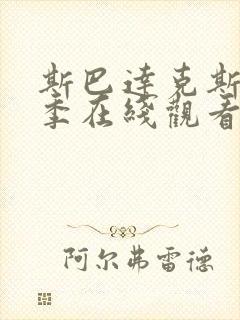 斯巴達克斯
季在綫觀看
阿尔弗雷德